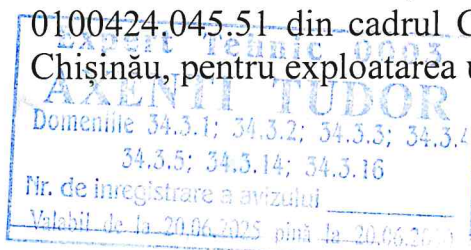 0100424.045.51 din cadrul C
Expert Tehnic 0003
Chișinău, pentru exploatarea u
AXENTI TUDOR
Domeniile 34.3.1; 34.3.2; 34.3.3; 34.3.4
34.3.5; 34.3.14; 34.3.16
Nr. de înregistrare a avizului
Valabil de la 20.06.2025 pînă la 20.06.20